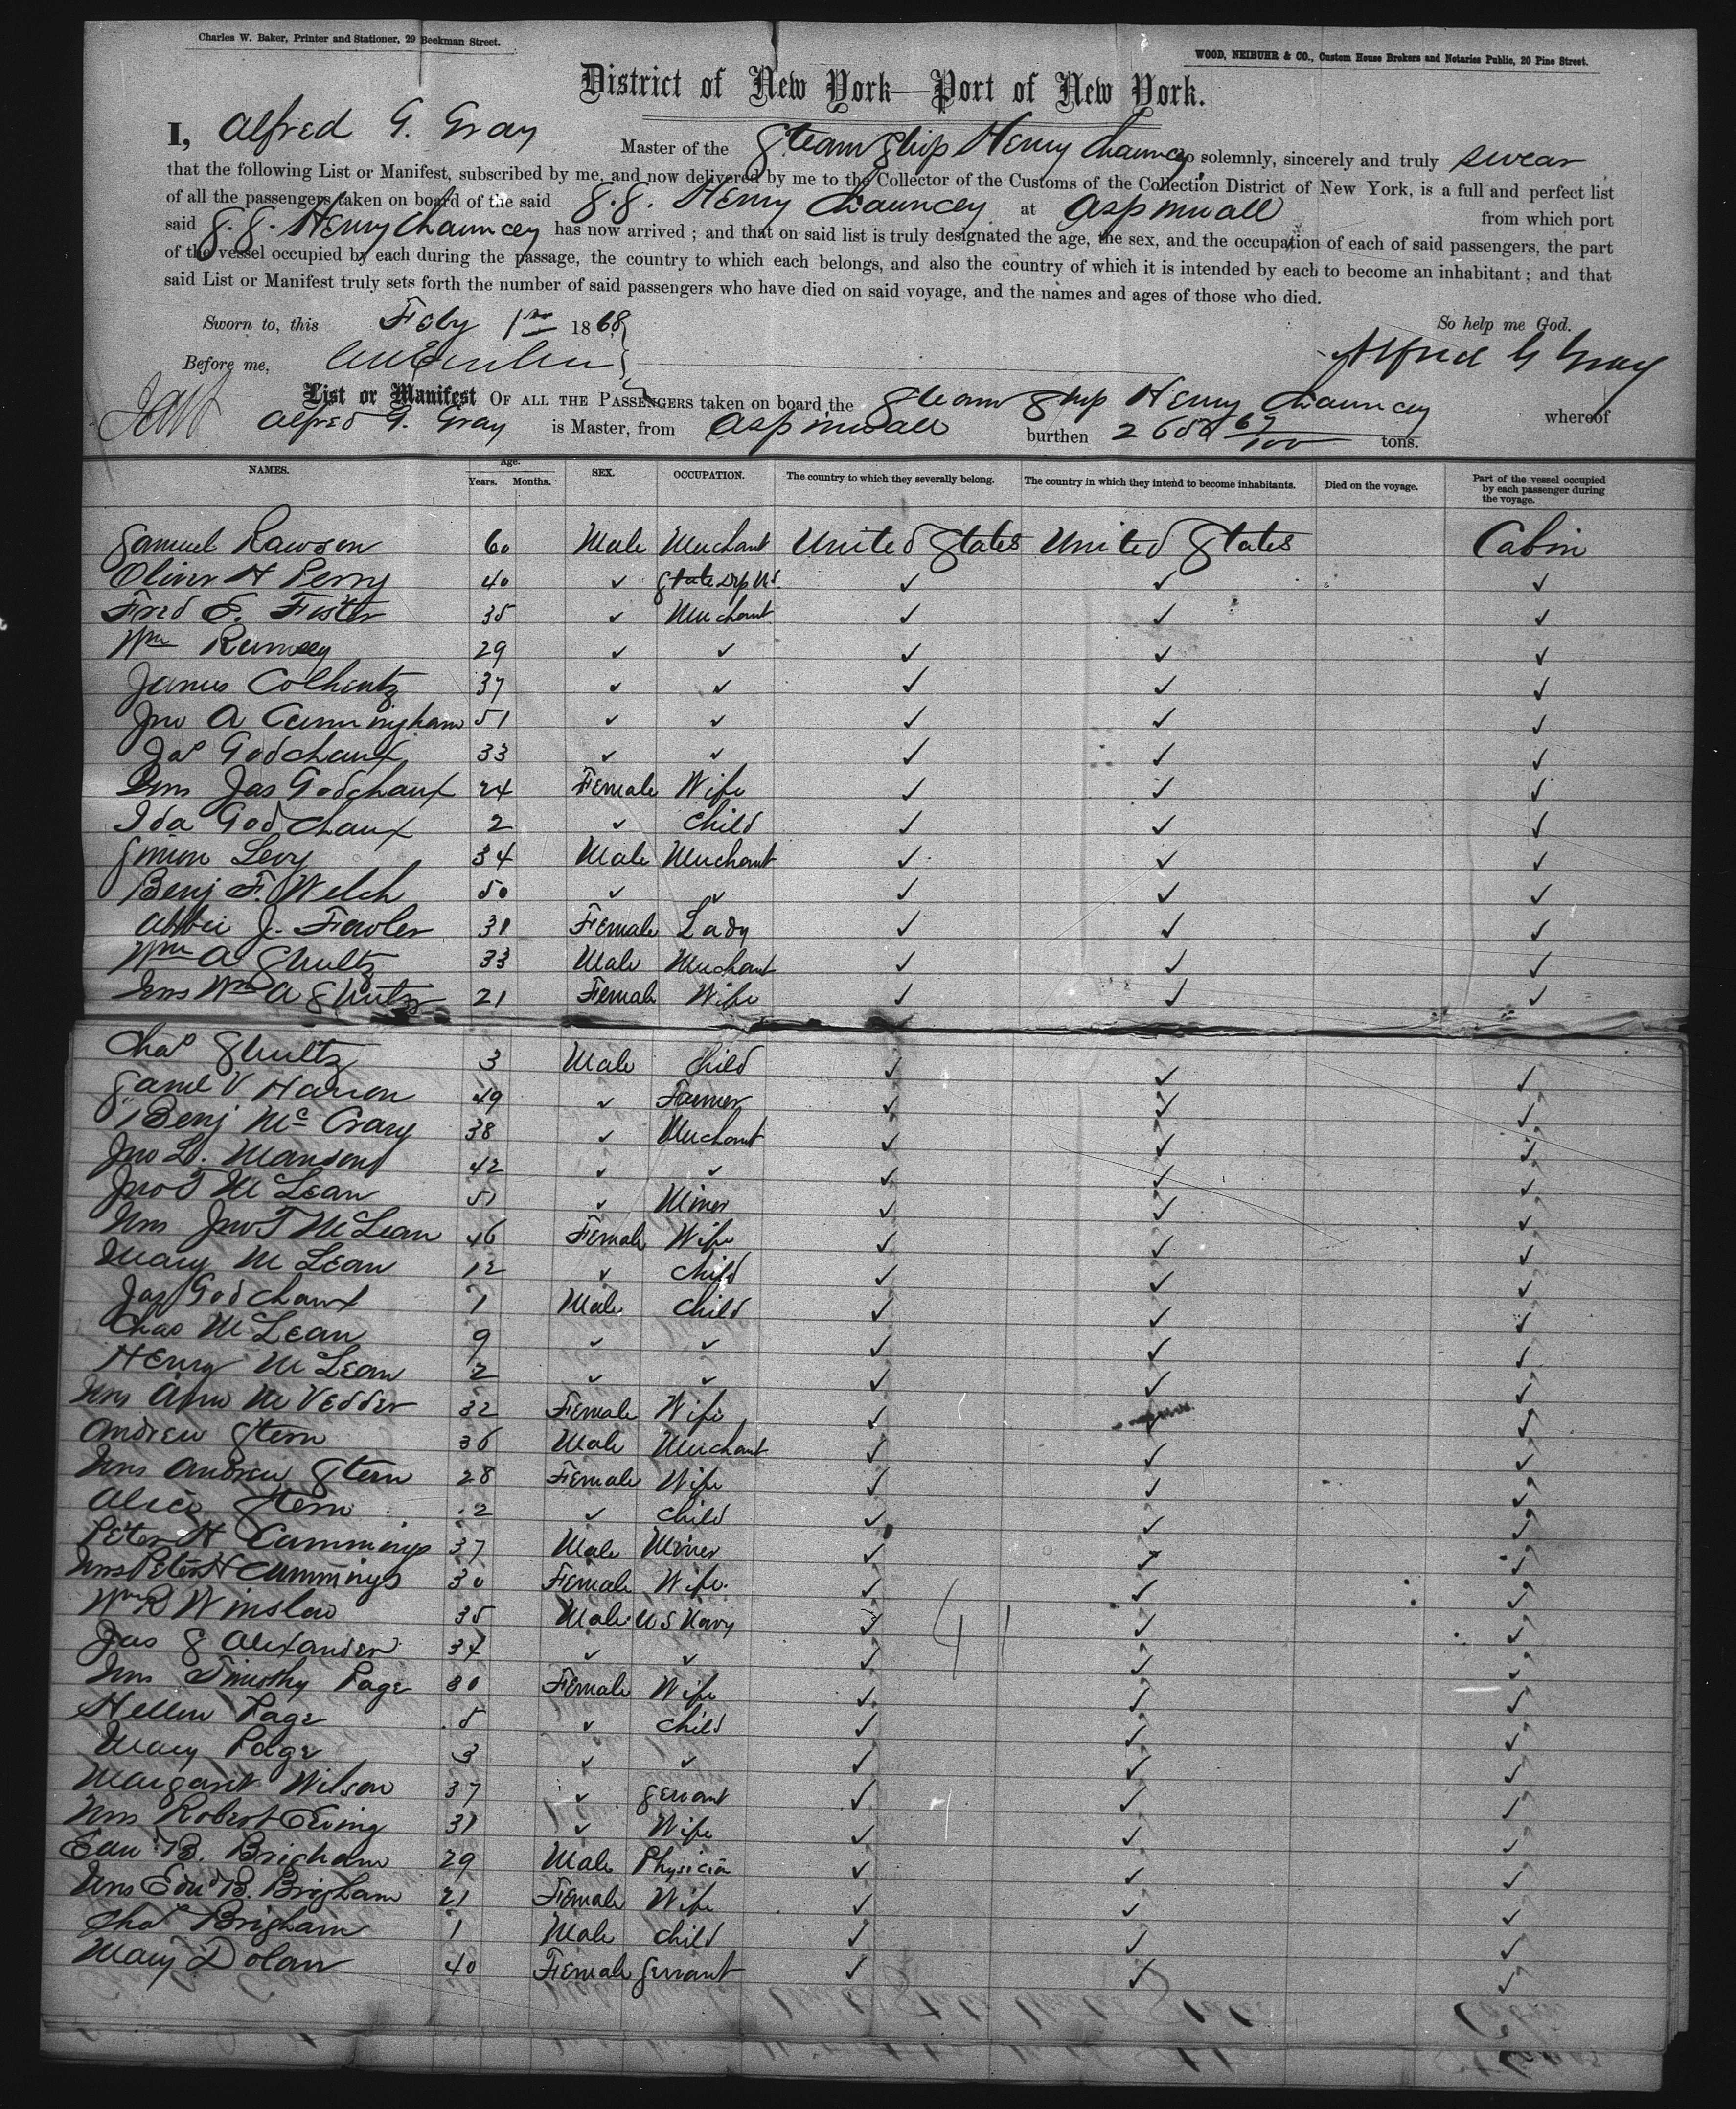 Charles W. Baker, Printer and Stationer, 29 Beekman Street.
WOOD, NEIBUHR & CO., Custom House Brokers and Notaries Public, 20 Pine Street.
District of New York—Port of New York.
I, Alfred G. Gray Master of the Steam Ship Henry Chauncey do solemnly, sincerely and truly swear
that the following List or Manifest, subscribed by me, and now delivered by me to the Collector of the Customs of the Collection District of New York, is a full and perfect list
of all the passengers taken on board of the said S.S. Henry Chauncey at Aspinwall from which port
said S.S. Henry Chauncey has now arrived; and that on said list is truly designated the age, the sex, and the occupation of each of said passengers, the part
of the vessel occupied by each during the passage, the country to which each belongs, and also the country of which it is intended by each to become an inhabitant; and that
said List or Manifest truly sets forth the number of said passengers who have died on said voyage, and the names and ages of those who died.
Sworn to, this Feby 1st 1868 So help me God.
Before me, Alfred G Gray
List or Manifest OF ALL THE PASSENGERS taken on board the Steam Ship Henry Chauncey whereof
Alfred G. Gray is Master, from Aspinwall burthen tons.
NAMES. Age. Years. Months. SEX. OCCUPATION. The country to which they severally belong. The country in which they intend to become inhabitants. Died on the voyage. Part of the vessel occupied by each passenger during the voyage.
Samuel Rawson 60 Male Merchant United States United States Cabin
Oliver H Perry 40 ✓ State Dep U.S. ✓ ✓ ✓
Fred E. Foster 35 ✓ Merchant ✓ ✓ ✓
Wm Rumsey 29 ✓ ✓ ✓ ✓ ✓
James 37 ✓ ✓ ✓ ✓ ✓
Jno A Cunningham 51 ✓ ✓ ✓ ✓ ✓
Jas Godchaux 33 ✓ ✓ ✓ ✓ ✓
Mrs Jas Godchaux 24 Female Wife ✓ ✓ ✓
Ida Godchaux 2 ✓ Child ✓ ✓ ✓
Simon Levy 34 Male Merchant ✓ ✓ ✓
Benj F. Welch 50 ✓ ✓ ✓ ✓ ✓
Abbie J. Fowler 31 Female Lady ✓ ✓ ✓
Wm A Shultz 33 Male Merchant ✓ ✓ ✓
Mrs Wm A Shultz 21 Female Wife ✓ ✓ ✓
Chas Shultz 3 Male Child ✓ ✓ ✓
Saml V 49 ✓ Farmer ✓ ✓ ✓
Benj Mc Crary 38 ✓ Merchant ✓ ✓ ✓
Jno L. 42 ✓ ✓ ✓ ✓ ✓
Jno T McLean 51 ✓ Miner ✓ ✓ ✓
Mrs Jno T McLean 46 Female Wife ✓ ✓ ✓
Mary McLean 12 ✓ Child ✓ ✓ ✓
Jas Godchaux 1 Male Child ✓ ✓ ✓
Chas McLean 9 ✓ ✓ ✓ ✓ ✓
Henry McLean 2 ✓ ✓ ✓ ✓ ✓
Mrs Ann M Vedder 32 Female Wife ✓ ✓ ✓
Andrew Stern 36 Male Merchant ✓ ✓ ✓
Mrs Andrew Stern 28 Female Wife ✓ ✓ ✓
Alice Stern 2 ✓ Child ✓ ✓ ✓
Peter H Cummings 37 Male Miner ✓ ✓ ✓
Mrs Peter H Cummings 30 Female Wife ✓ ✓ ✓
Wm R Winslow 35 Male U S Navy ✓ 41 ✓ ✓
Jas S Alexander 34 ✓ ✓ ✓ ✓ ✓
Mrs Timothy Page 30 Female Wife ✓ ✓ ✓
Hellen Page 5 ✓ Child ✓ ✓ ✓
Mary Page 3 ✓ ✓ ✓ ✓ ✓
Margaret Wilson 37 ✓ Servant ✓ ✓ ✓
Mrs Robert Ewing 31 ✓ Wife ✓ ✓ ✓
Edw B. Brigham 29 Male Physician ✓ ✓ ✓
Mrs Edwd B. Brigham 21 Female Wife ✓ ✓ ✓
Chas Brigham 1 Male Child ✓ ✓ ✓
Mary Dolan 40 Female Servant ✓ ✓ ✓